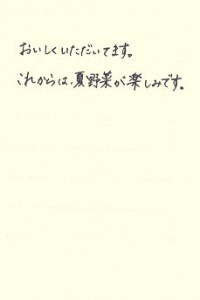 おいしくいただいてます。
これからは、夏野菜が楽しみです。